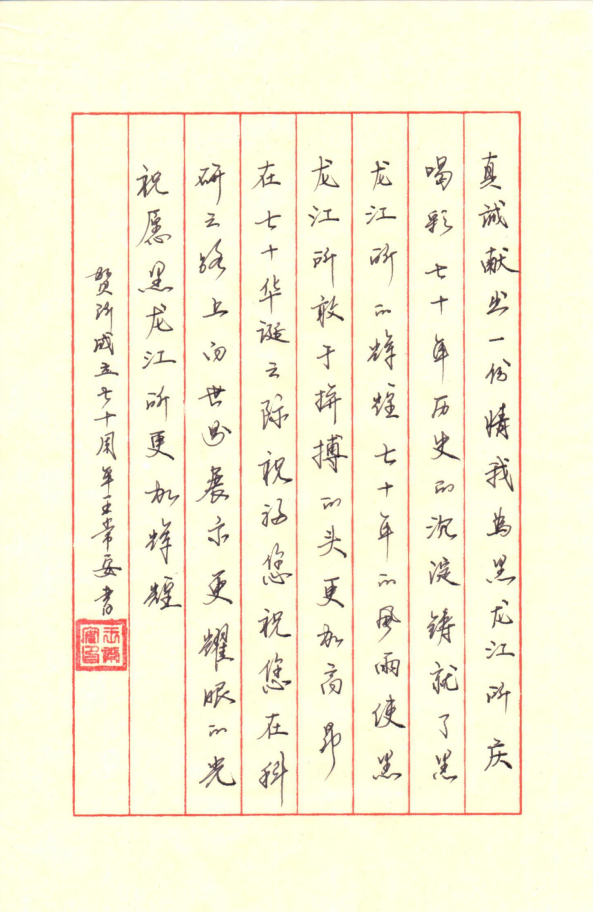 真诚献出一份情我为黑龙江所庆
喝彩七十年历史的沉淀铸就了黑
龙江所的辉煌七十年的风雨使黑
龙江所敢于拚搏的头更加高昂
在七十华诞之际祝福您祝您在科
研之路上向世界展示更耀眼的光
祝愿黑龙江所更加辉煌
贺所成立七十周年王常安书